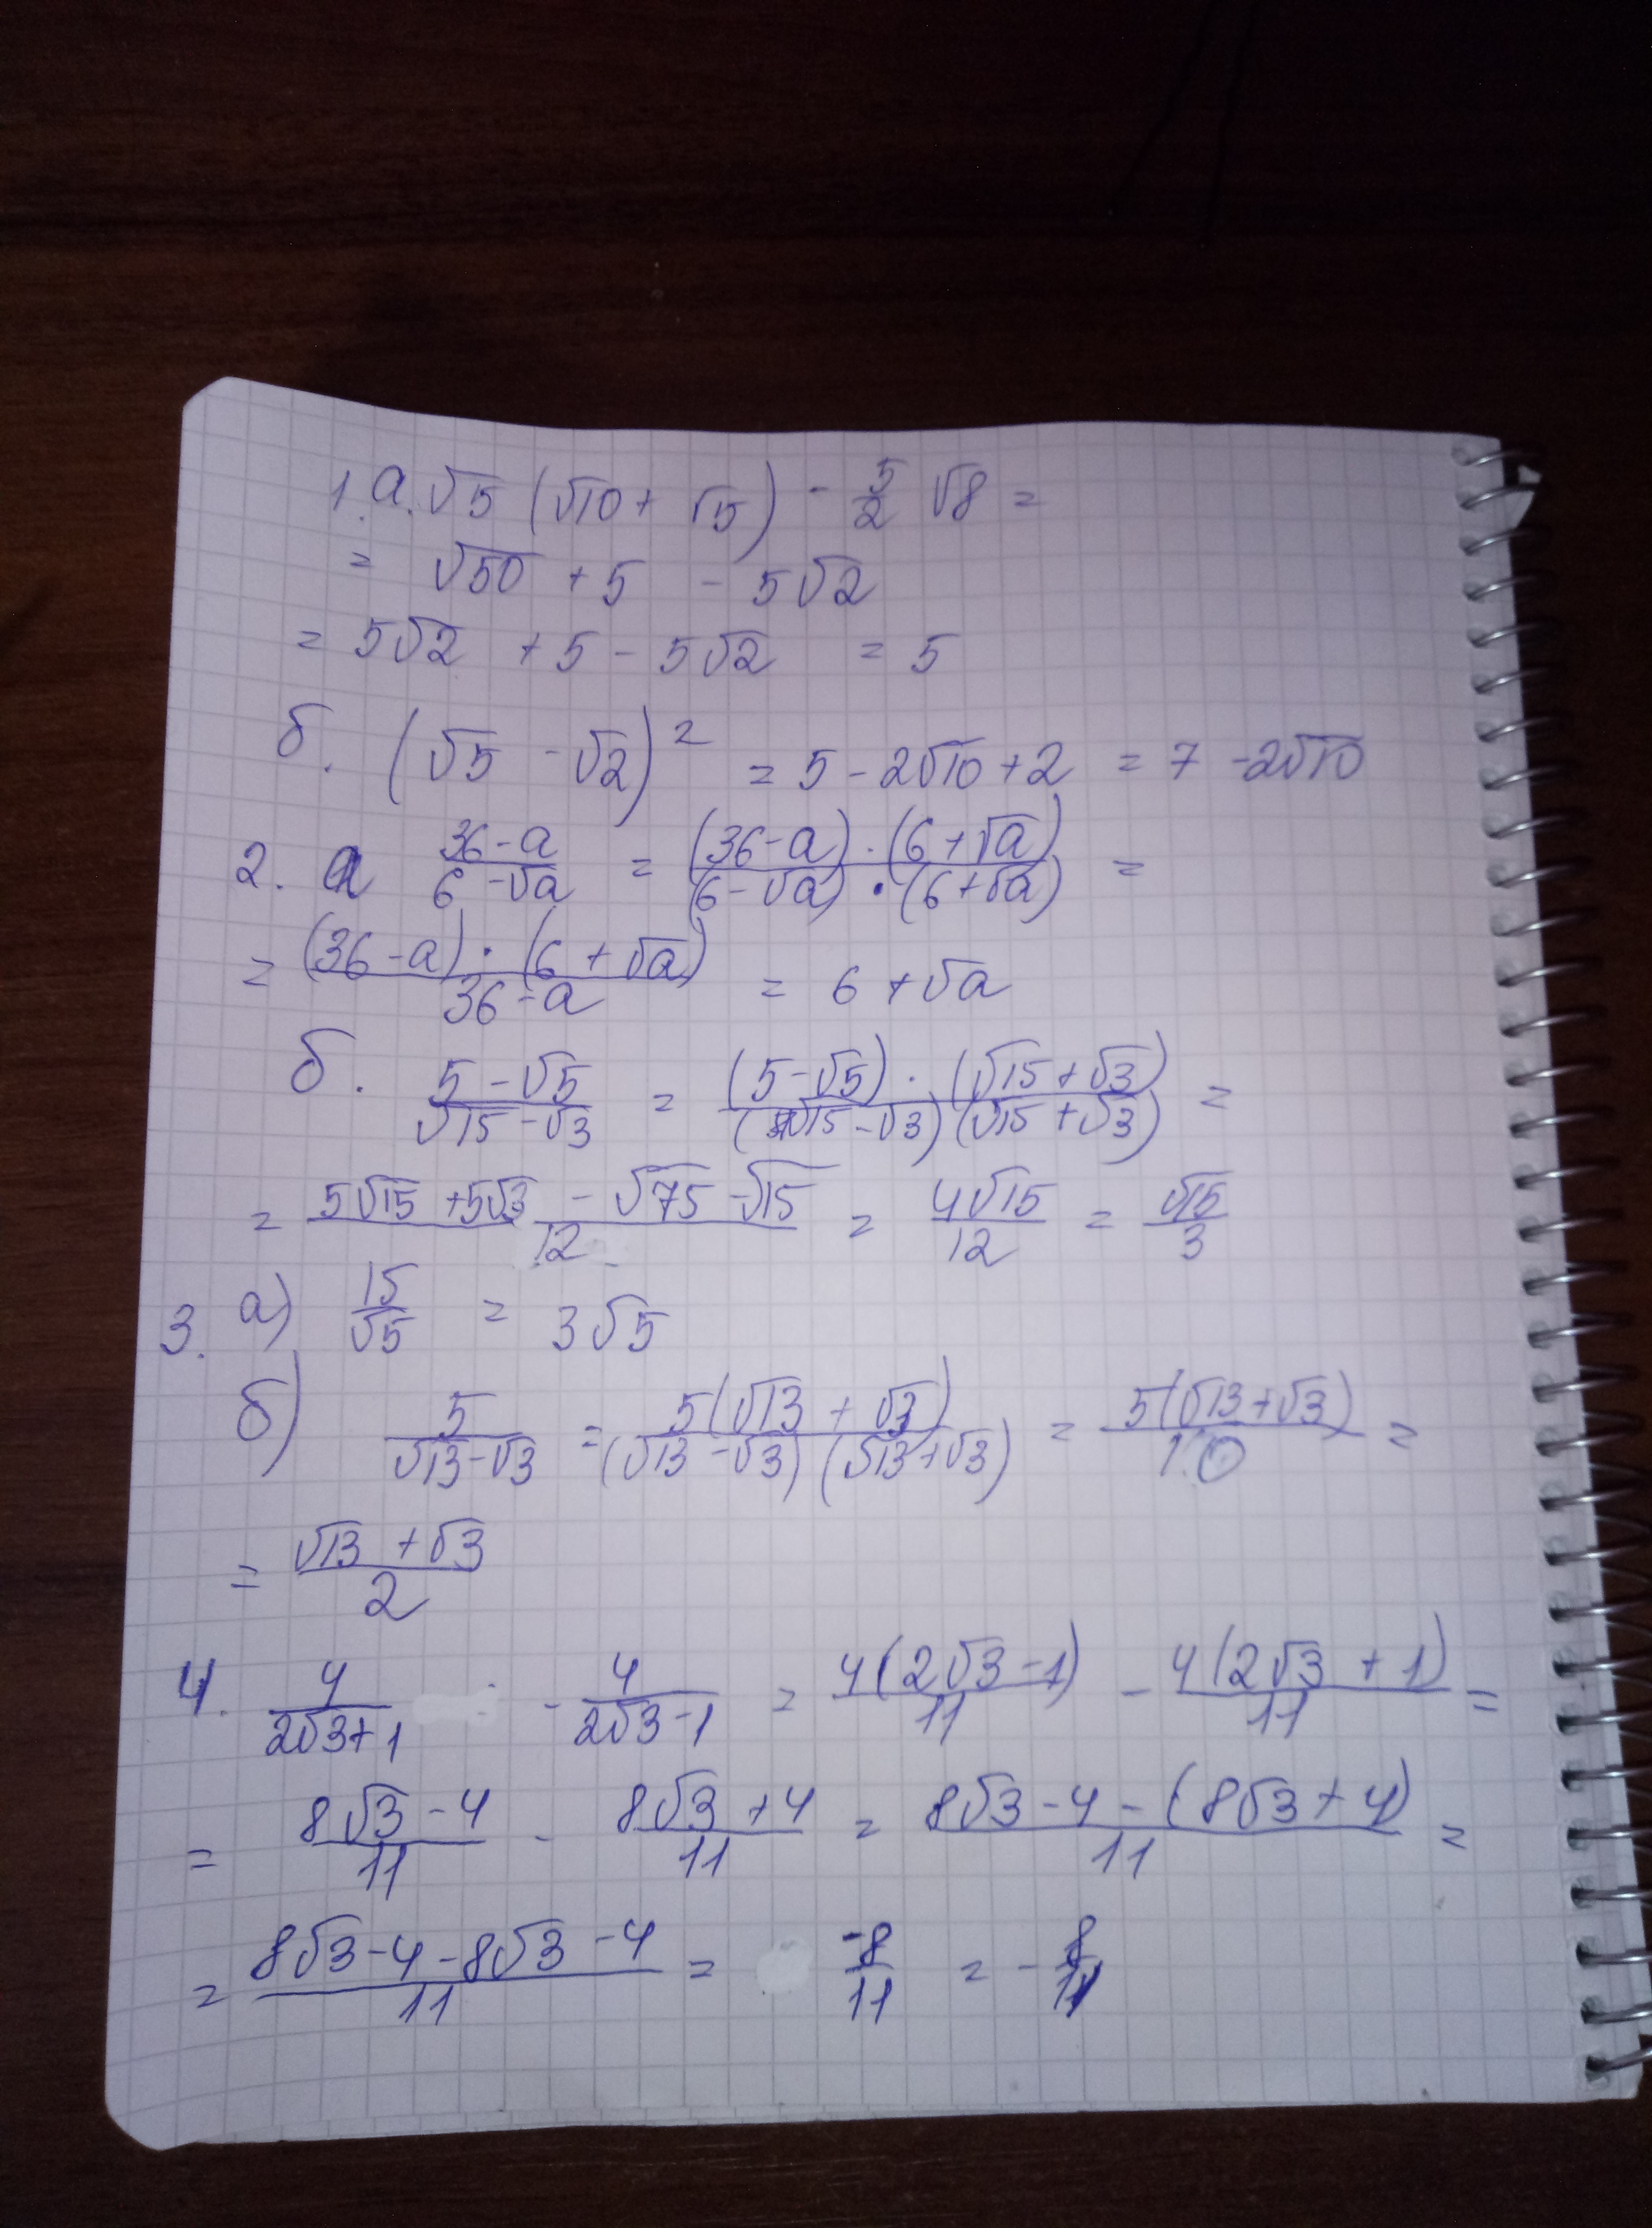 1. а. √5 (√10 + √5) - 5/2 √8 =
= √50 + 5 - 5√2
= 5√2 + 5 - 5√2 = 5
б. (√5 - √2)² = 5 - 2√10 + 2 = 7 - 2√10
2. а (36-a)/(6-√a) = ((36-a)·(6+√a))/((6-√a)·(6+√a)) =
= ((36-a)·(6+√a))/(36-a) = 6 + √a
б. (5-√5)/(√15-√3) = ((5-√5)·(√15+√3))/((√15-√3)(√15+√3)) =
= (5√15 + 5√3 - √75 - √15)/12 = 4√15/12 = √15/3
3. а) 15/√5 = 3√5
б) 5/(√13-√3) = 5(√13+√3)/((√13-√3)(√13+√3)) = 5(√13+√3)/10 =
= (√13+√3)/2
4. 4/(2√3+1) - 4/(2√3-1) = 4(2√3-1)/11 - 4(2√3+1)/11 =
= (8√3-4)/11 - (8√3+4)/11 = (8√3-4-(8√3+4))/11 =
= (8√3-4-8√3-4)/11 = -8/11 = - 8/11